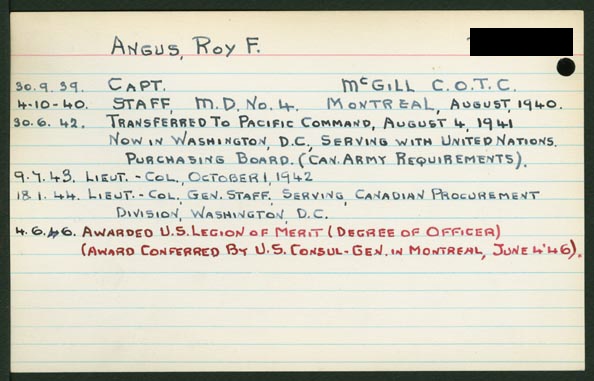 ANGUS, ROY F.
30.9.39. CAPT. McGILL C.O.T.C.
4-10-40. STAFF, M.D. No. 4. MONTREAL, AUGUST, 1940.
30.6.42. TRANSFERRED TO PACIFIC COMMAND, AUGUST 4, 1941
NOW IN WASHINGTON, D.C., SERVING WITH UNITED NATIONS.
PURCHASING BOARD. (CAN. ARMY REQUIREMENTS).
9.7.43. LIEUT.-COL, OCTOBER 1, 1942
18.1.44. LIEUT.-COL, GEN. STAFF, SERVING, CANADIAN PROCUREMENT
DIVISION, WASHINGTON, D.C.
4.6.46. AWARDED U.S. LEGION OF MERIT (DEGREE OF OFFICER)
(AWARD CONFERRED BY U.S. CONSUL-GEN. IN MONTREAL, JUNE 4'46).